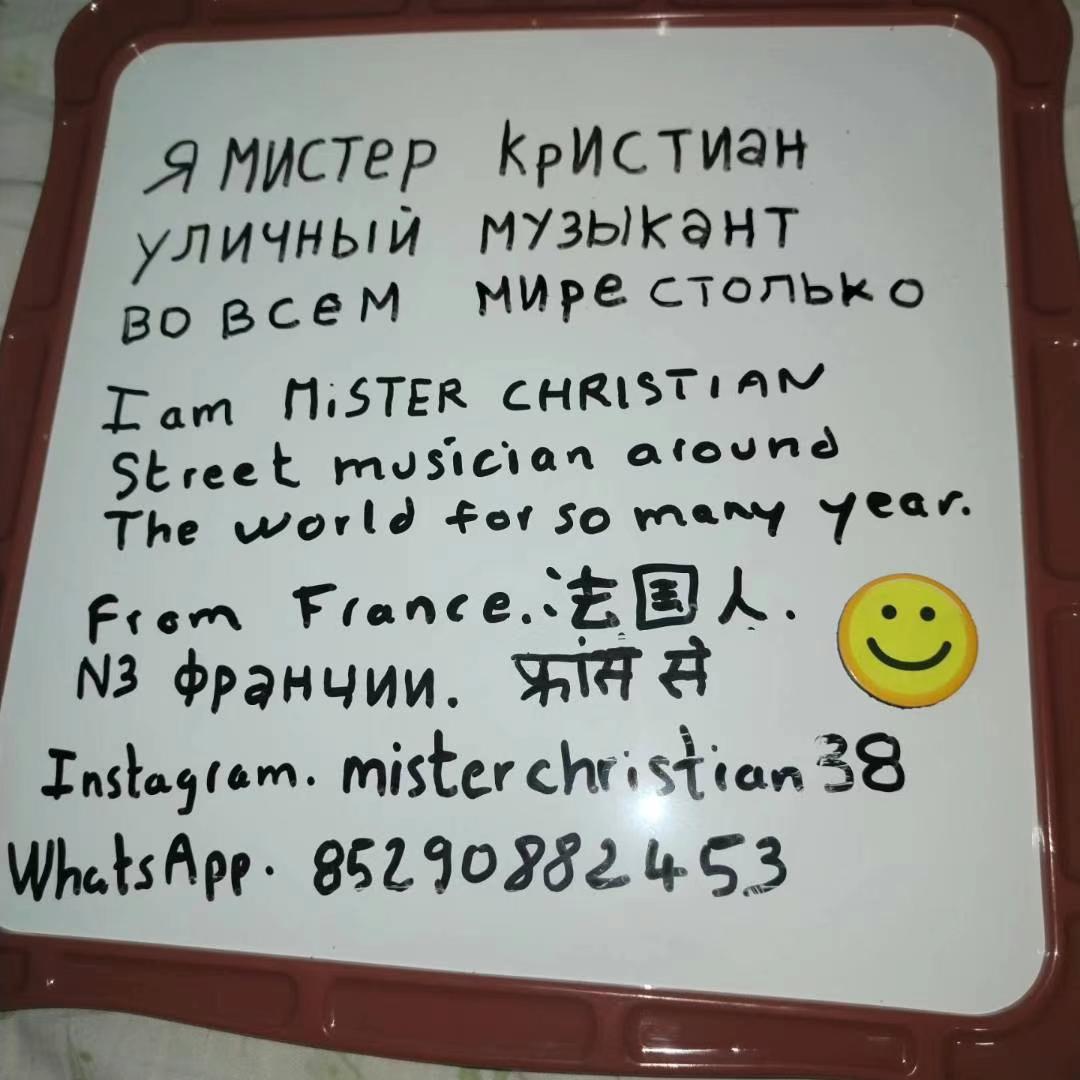 Я МИСТЕР КРИСТИАН
УЛИЧНЫЙ МУЗЫКАНТ
ВО ВСЕМ МИРЕ СТОЛЬКО
I am MiSTER CHRISTIAN
Street musician around
The world for so many year.
From France. 法国人.
ИЗ ФРАНЧИИ. फ्रांस से
Instagram. misterchristian38
WhatsApp. 85290882453